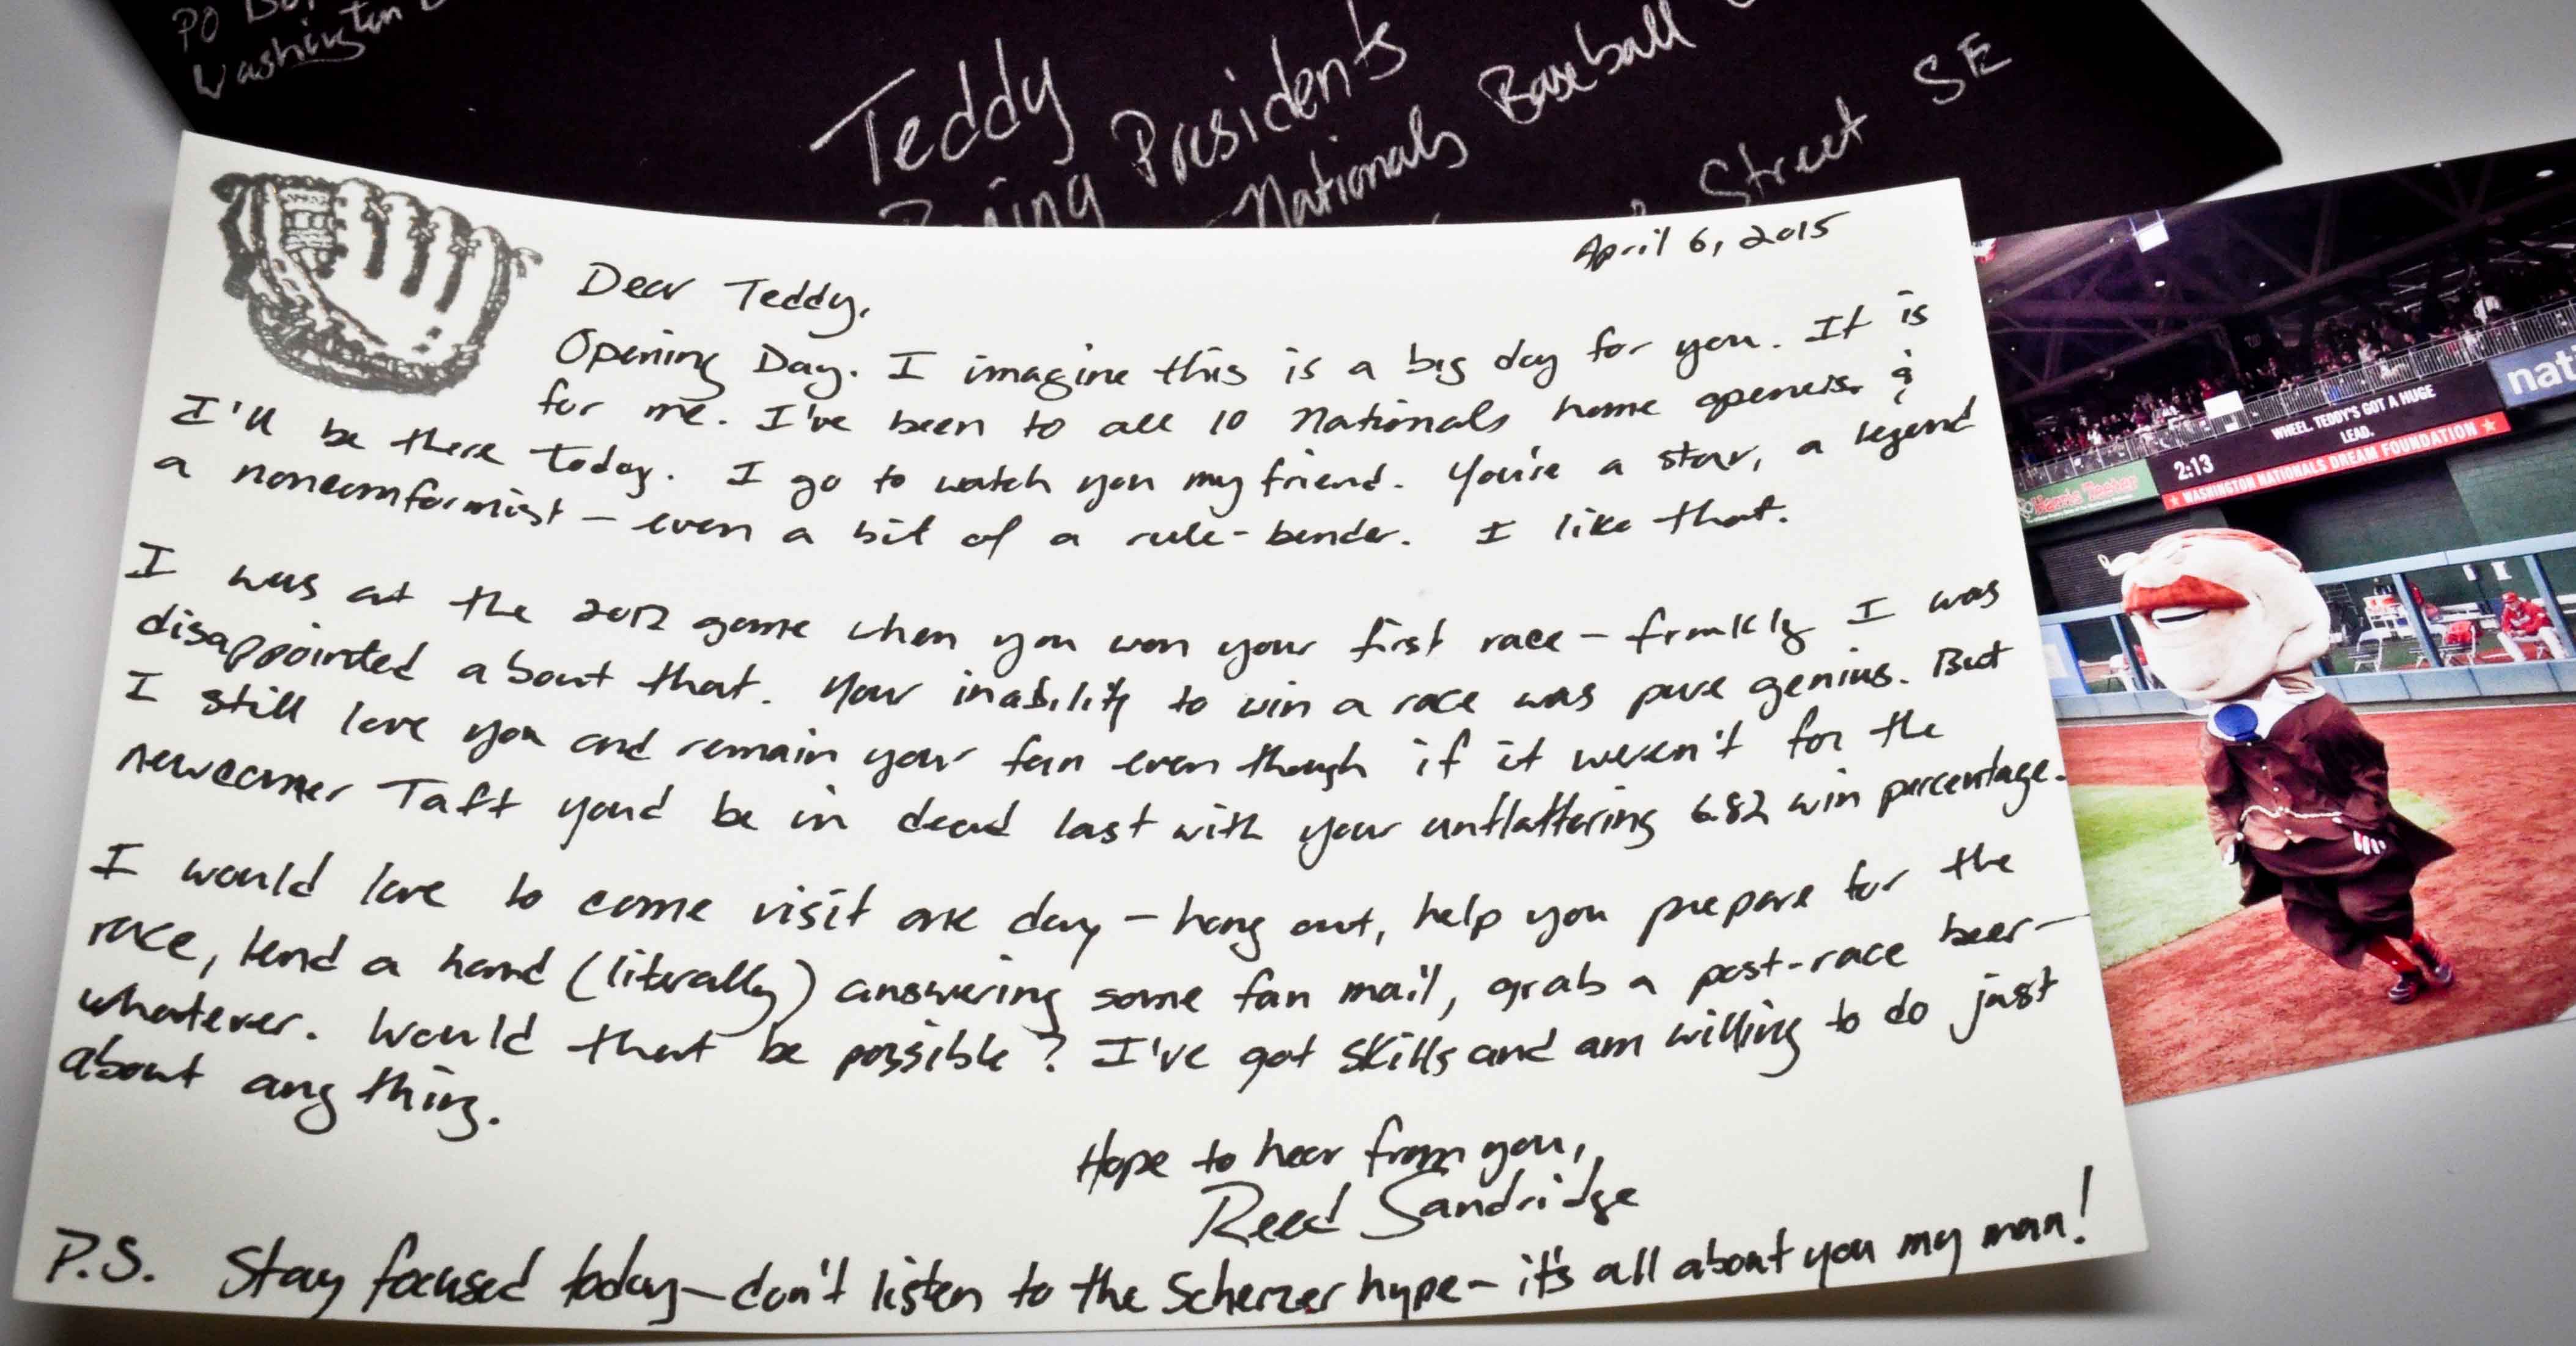 PO
Washington
Teddy
Racing Presidents
Nationals Baseball
Street SE
April 6, 2015
Dear Teddy,
Opening Day. I imagine this is a big day for you. It is
for me. I've been to all 10 Nationals home openers &
I'll be there today. I go to watch you my friend. You're a star, a legend
a nonconformist – even a bit of a rule-bender. I like that.
I was at the 2012 game when you won your first race – frankly I was
disappointed about that. Your inability to win a race was pure genius. But
I still love you and remain your fan even though if it weren't for the
newcomer Taft you'd be in dead last with your unflattering 6.82 win percentage.
I would love to come visit one day – hang out, help you prepare for the
race, lend a hand (literally) answering some fan mail, grab a post-race beer –
whatever. Would that be possible? I've got skills and am willing to do just
about anything.
Hope to hear from you,
Reed Sandridge
P.S. Stay focused today – don't listen to the Scherzer hype – it's all about you my man!
nati
WHEEL. TEDDY'S GOT A HUGE
LEAD.
2:13
WASHINGTON NATIONALS DREAM FOUNDATION
Harris Teeter